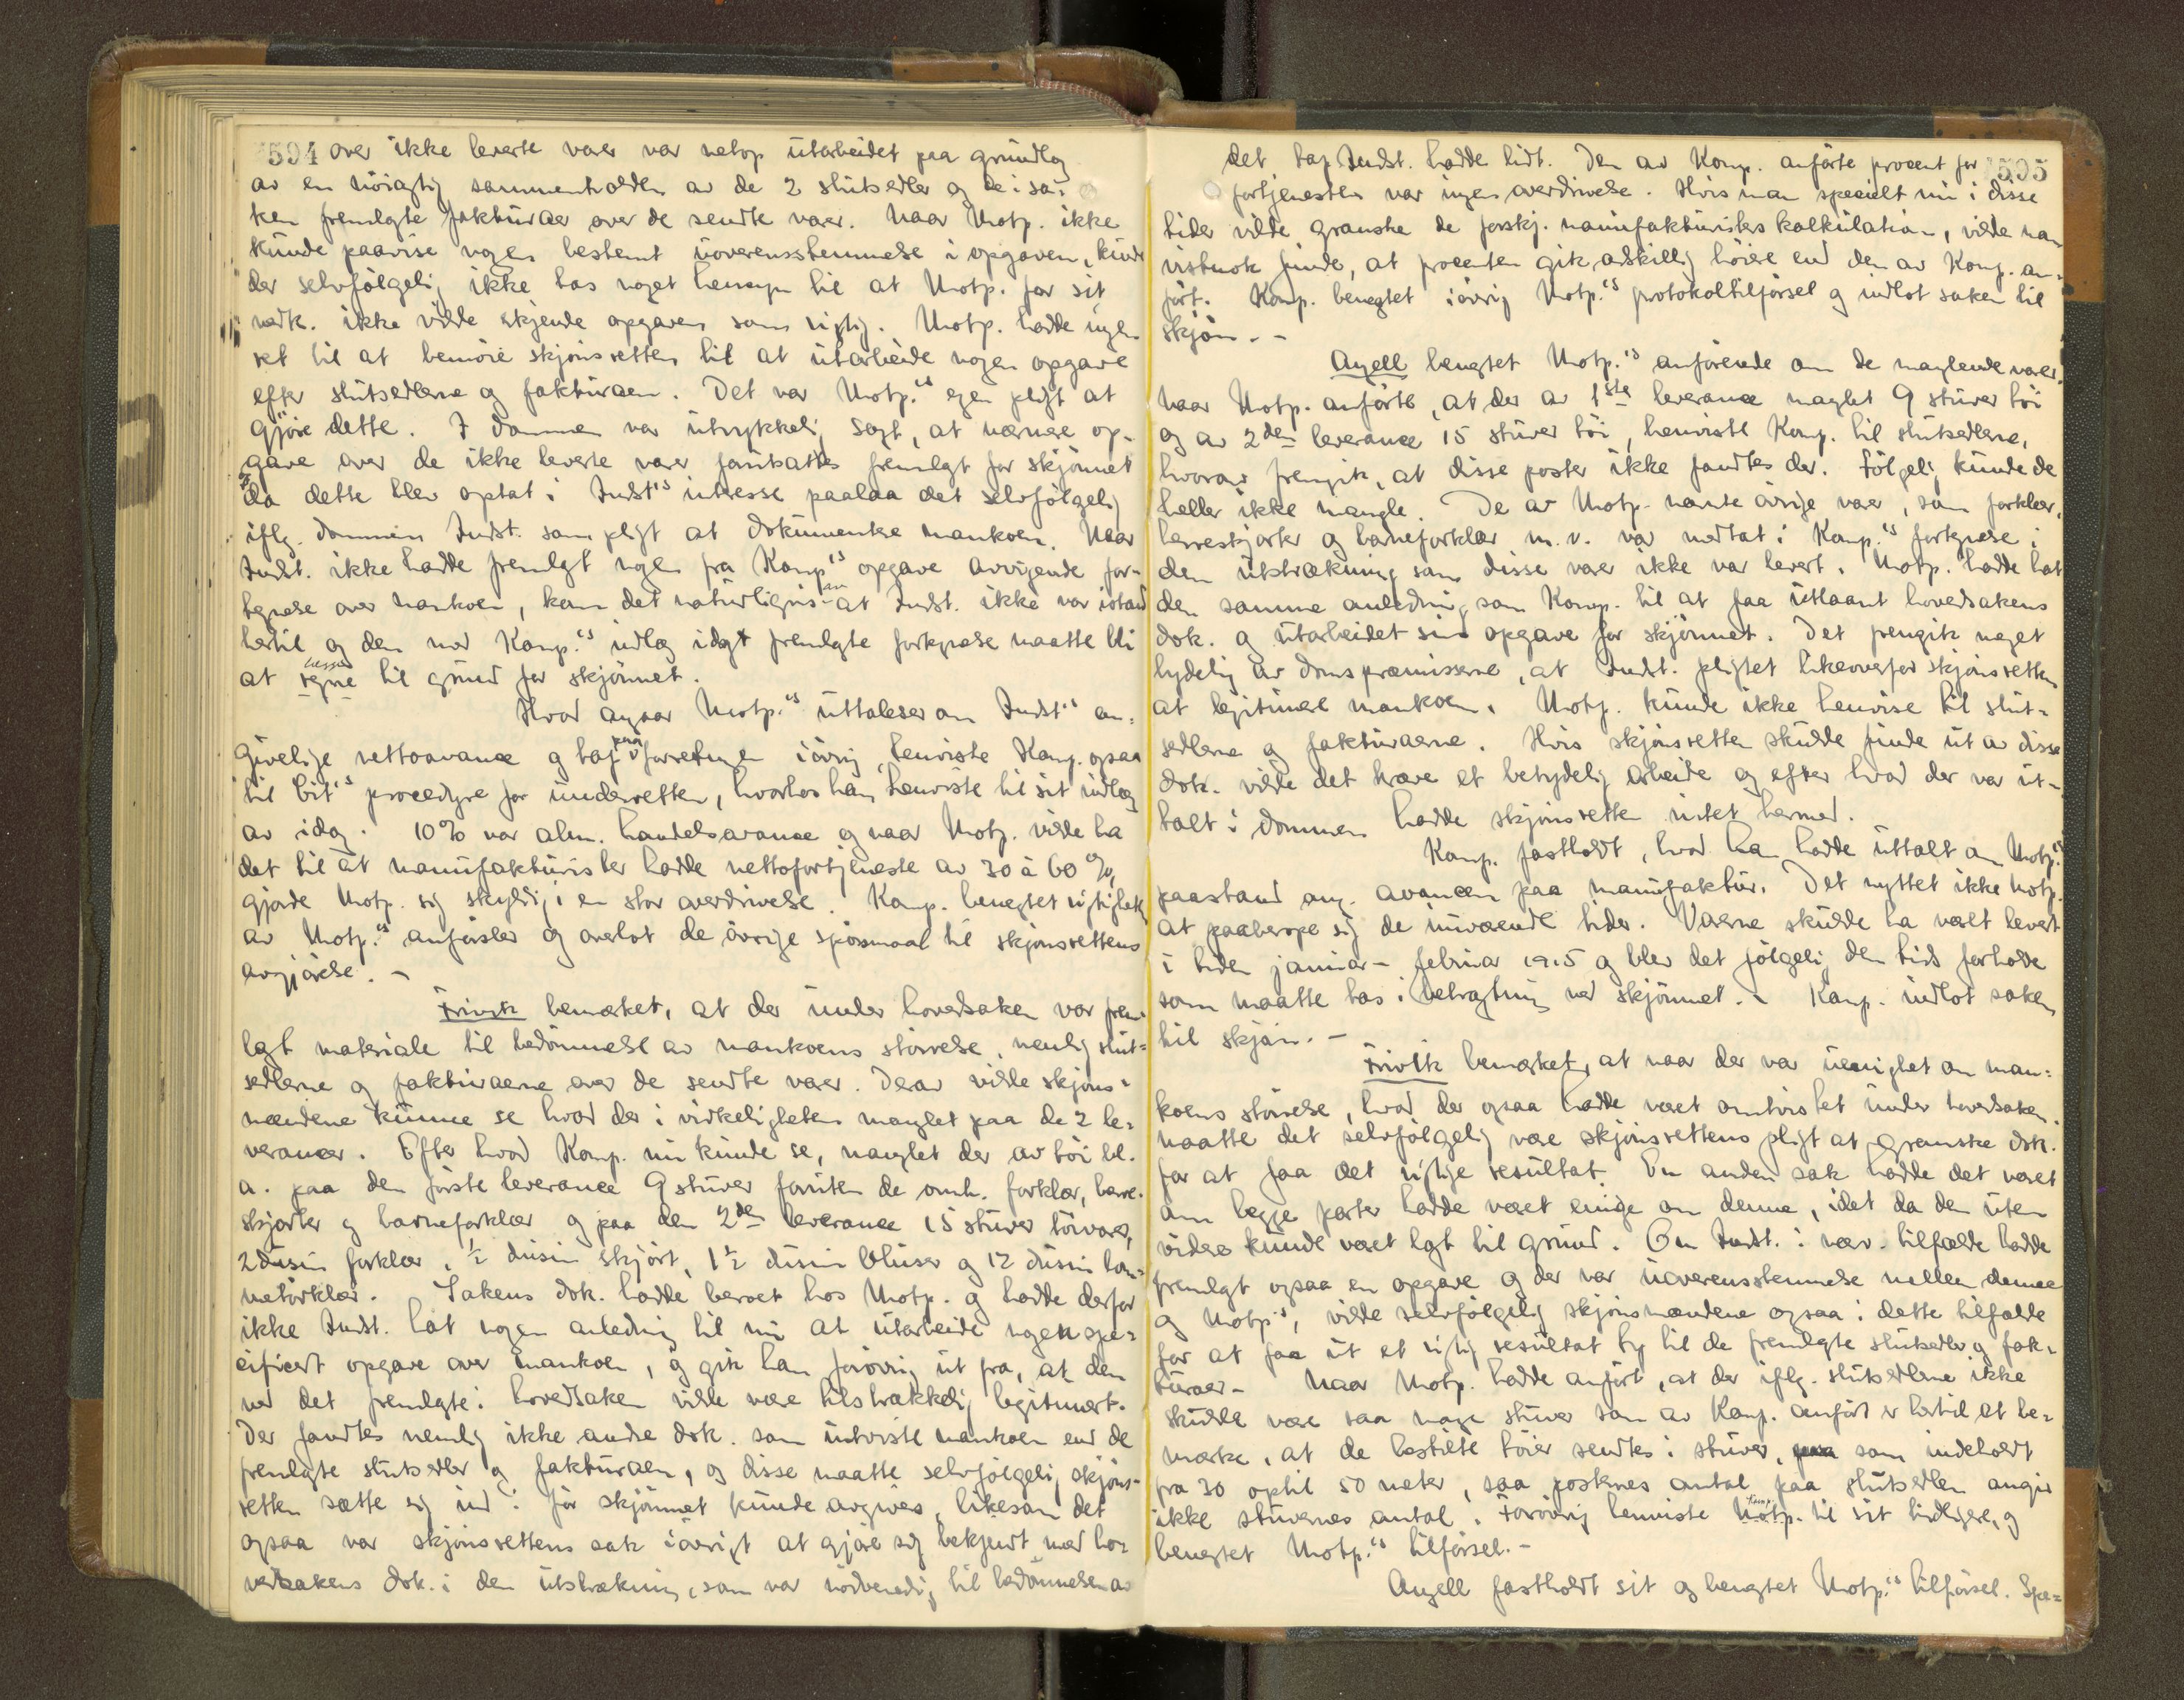 594 over ikke leverte varer var netop utarbeidet paa grundlag
av en nöiagtig sammenholden av de 2 slutsedler og de i sa-
ken fremlagte fakturaer over de sendte varer. Naar Motp. ikke
kunde paavise nogen bestemt uoverensstemmelse i opgaven, kunde
der selvfölgelig ikke tas noget hensyn til at Motp. for sit
vedk. ikke vilde erkjende opgaven som rigtig. Motp. hadde ingen
ret til at henvise skjönsretten til at utarbeide nogen opgave
efter slutsedlerne og fakturaen. Det var Motp.'s egen pligt at
gjöre dette. I dommen var utrykkelig sagt, at nærmere op-
gave over de ikke leverte varer forutsattes fremlagt for skjönnet
da dette blev optat i Indst's interesse paalaa det selvfölgelig
iflg. dommen Indst. som pligt at dokumentere mankoen. Naar
Indst. ikke hadde fremlagt nogen fra Komp's opgave avvigende for-
tegnelse over mankoen, kom det naturligvis av at Indst. ikke var istand
hertil og den ved Komp.'s indlæg idag fremlagte fortegnelse maatte bli
at lægge til grund for skjönnet.
Hvad angaar Motp.'s uttalelser om Indst's an-
givelige nettoavance og tap paa forretningen iövrig henviste Komp. ogsaa
til Cit's procedyre for underretten, hvorhos han henviste til sit indlæg
av idag. 10% var alm. handelsavance og naar Motp. vilde ha
det til at manufakturister hadde nettofortjeneste av 30 à 60 %,
gjorde Motp. sig skyldig i en stor overdrivelse. Komp. benegtet rigtigheten
av Motp.'s anförsler og overlot de övrige spörsmaal til skjönsrettens
avgjörelse. -
Frivik bemerket, at der under hovedsaken var frem-
lagt materiale til bedömmelse av mankoens störrelse, nemlig slut-
sedlerne og fakturaerne over de sendte varer. Derav vilde skjöns-
mændene kunne se hvad der i virkeligheten manglet paa de 2 le-
verancer. Efter hvad Komp. nu kunde se, manglet der av töi bl.
a. paa den förste leverance 9 stuver foruten de omh. forklær, herre-
skjorter og barneforklær og paa den 2den leverance 15 stuver töivarer,
2 dusin forklær, ½ dusin skjört, 1½ dusin bluser og 12 dusin lom-
metörklær. Sakens dok. hadde beroet hos Motp. og hadde derfor
ikke Indst. hat nogen anledning til nu at utarbeide nogen spe-
cificert opgave over mankoen, og gik han forövrig ut fra, at den
ved det fremlagte i hovedsaken vilde være tilstrækkelig legitimert.
Der fandtes nemlig ikke andre dok. som utviste mankoen end de
fremlagte slutsedler og fakturaen, og disse maatte selvfölgelig skjöns-
retten sætte sig ind i för skjönnet kunde avgives, likesom det
ogsaa var skjönsrettens sak iövrigt at gjöre sig bekjendt med ho-
vedsakens dok. i den utstrækning, som var nödvendig til bedömmelsen av
595
det tap Indst. hadde lidt. Den av Komp. anförte procent for
fortjenesten var ingen overdrivelse. Hvis man specielt nu i disse
tider vilde granske de forskj. manufakturisters kalkulation, vilde man
vistnok finde, at procenten gik adskillig höiere end den av Komp. an-
fört. Komp. benegtet iövrig Motp.'s protokoltilförsel og indlot saken til
skjön. -
Angell benegtet Motp.'s anförende om de manglende varer.
Naar Motp. anförte, at der av 1ste leverance manglet 9 stuver töi
og av 2den leverance 15 stuver töi, henviste Komp. til slutsedlerne,
hvorav fremgik, at disse poster ikke fandtes der. Fölgelig kunde de
heller ikke mangle. De av Motp. nævnte övrige varer, som forklær,
herreskjorter og barneforklær m.v. var medtat i Komp.'s fortegnelse i
den utstrækning som disse varer ikke var levert. Motp. hadde hat
den samme anledning som Komp. til at faa utlaant hovedsakens
dok. og utarbeidet sin opgave for skjönnet. Det fremgik meget
tydelig av domspræmisserne, at Indst. pligtet likeoverfor skjönsretten
at legitimere mankoen. Motp. kunde ikke henvise til slut-
sedlerne og fakturaerne. Hvis skjönsretten skulde finde ut av disse
dok. vilde det kræve et betydelig arbeide og efter hvad der var ut-
talt i dommen hadde skjönsretten intet hermed.
Komp. fastholdt, hvad han hadde uttalt om Motp.'s
paastand ang. avancen paa manufaktur. Det nyttet ikke Motp.
at paaberope sig de nuværende tider. Varerne skulde ha været levert
i tiden januar - februar 1915 og blev det fölgelig den tids forholde
som maatte tas i betragtning ved skjönnet. - Komp. indlot saken
til skjön. -
Frivik bemerket, at naar der var uenighet om man-
koens störrelse, hvad der ogsaa hadde været omtvistet under hovedsaken,
maatte det selvfölgelig være skjönsrettens pligt at granske dok.
for at faa det rigtige resultat. En anden sak hadde det været
om begge parter hadde været enige om denne, idet da den uten
videre kunde været lagt til grund. Om Indst. i nærv. tilfælde hadde
fremlagt ogsaa en opgave og der var uoverensstemmelse mellem denne
og Motp's, vilde selvfölgelig skjönsmændene ogsaa i dette tilfælde
for at faa ut et rigtig resultat ty til de fremlagte slutsedler og fak-
turaer. - Naar Motp. hadde anfört, at der iflg. slutsedlerne ikke
skulde være saa mange stuver som av Komp. anfört er hertil at be-
mærke, at de bestilte töier sendtes i stuver, som indeholdt
fra 30 optil 50 meter, saa posternes antal paa slutsedlen angir
ikke stuvernes antal. Forövrig henviste Komp. til sit tidligere, og
benegtet Motp.'s tilförsel. -
Angell fastholdt sit og benegtet Motp.'s tilförsel. Spe-